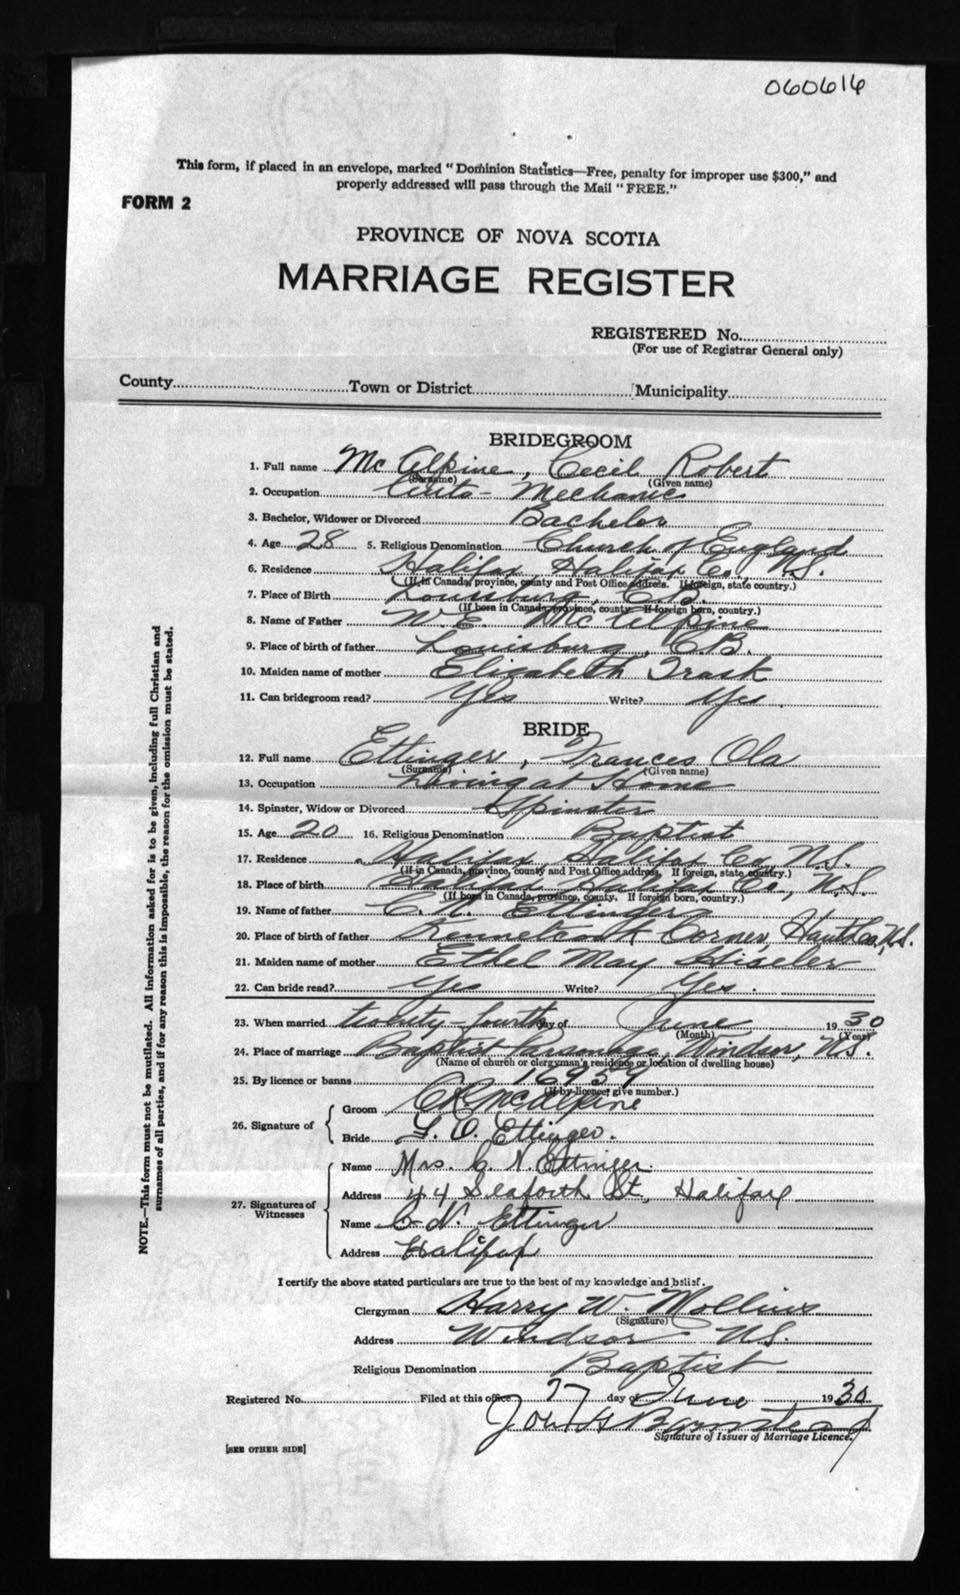 060616
This form, if placed in an envelope, marked "Dominion Statistics—Free, penalty for improper use $300," and
properly addressed will pass through the Mail "FREE."
FORM 2
PROVINCE OF NOVA SCOTIA
MARRIAGE REGISTER
REGISTERED No.
(For use of Registrar General only)
County Town or District Municipality
BRIDEGROOM
1. Full name Mc Alpine, Cecil Robert
(Surname) (Given name)
2. Occupation Auto-Mechanic
3. Bachelor, Widower or Divorced Bachelor
4. Age 28 5. Religious Denomination Church of England
6. Residence Halifax, Halifax Co., N.S.
(If in Canada, province, county and Post Office address. If foreign, state country.)
7. Place of Birth Louisburg, C.B.
(If born in Canada, province, county. If foreign born, country.)
8. Name of Father W. E. McAlpine
9. Place of birth of father Louisburg, C.B.
10. Maiden name of mother Elizabeth Trask
11. Can bridegroom read? Yes Write? Yes
BRIDE
12. Full name Ettinger, Frances Ola
(Surname) (Given name)
13. Occupation Living at Home
14. Spinster, Widow or Divorced Spinster
15. Age 20 16. Religious Denomination Baptist
17. Residence Halifax, Halifax Co., N.S.
(If in Canada, province, county and Post Office address, If foreign, state country.)
18. Place of birth Halifax Halifax Co., N.S.
(If born in Canada, province, county. If foreign born, country.)
19. Name of father C. N. Ettinger
20. Place of birth of father Kennetcook Corner, Hants Co, N.S.
21. Maiden name of mother Ethel May Hiseler
22. Can bride read? Yes Write? Yes.
23. When married twenty-fourth day of June 1930
(Month) (Year)
24. Place of marriage Baptist Parsonage, Windsor, N.S.
(Name of church or clergyman's residence or location of dwelling house)
25. By licence or banns 16959
(If by licence, give number.)
26. Signature of Groom C R McAlpine
Bride F. O. Ettinger.
27. Signatures of Witnesses
Name Mrs. C. N. Ettinger
Address 44 Seaforth St., Halifax
Name C. N. Ettinger
Address Halifax
I certify the above stated particulars are true to the best of my knowledge and belief.
Clergyman Harry W. Mollins
(Signature)
Address Windsor N.S.
Religious Denomination Baptist
Registered No. Filed at this office 27 day of June 1930
John H Barnstead
Signature of Issuer of Marriage Licence.
[SEE OTHER SIDE]
NOTE.—This form must not be mutilated. All information asked for is to be given, including full Christian and
surnames of all parties, and if for any reason this is impossible, the reason for the omission must be stated.